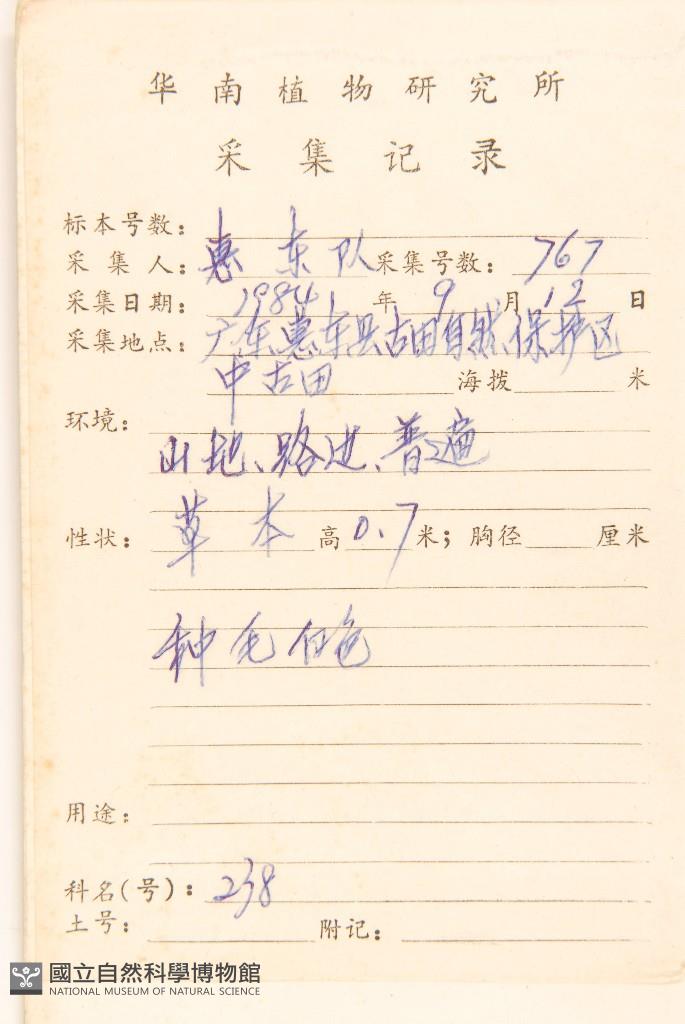 华南植物研究所
采集记录
标本号数:
采集人: 惠东队 采集号数: 767
采集日期: 1984 年 9 月 12 日
采集地点: 广东惠东县古田自然保护区
中古田 海拨 米
环境:
山地、路边、普遍
性状: 草本 高 0.7 米; 胸径 厘米
种毛白色
用途:
科名(号): 238
土号: 附记:
國立自然科學博物館
NATIONAL MUSEUM OF NATURAL SCIENCE